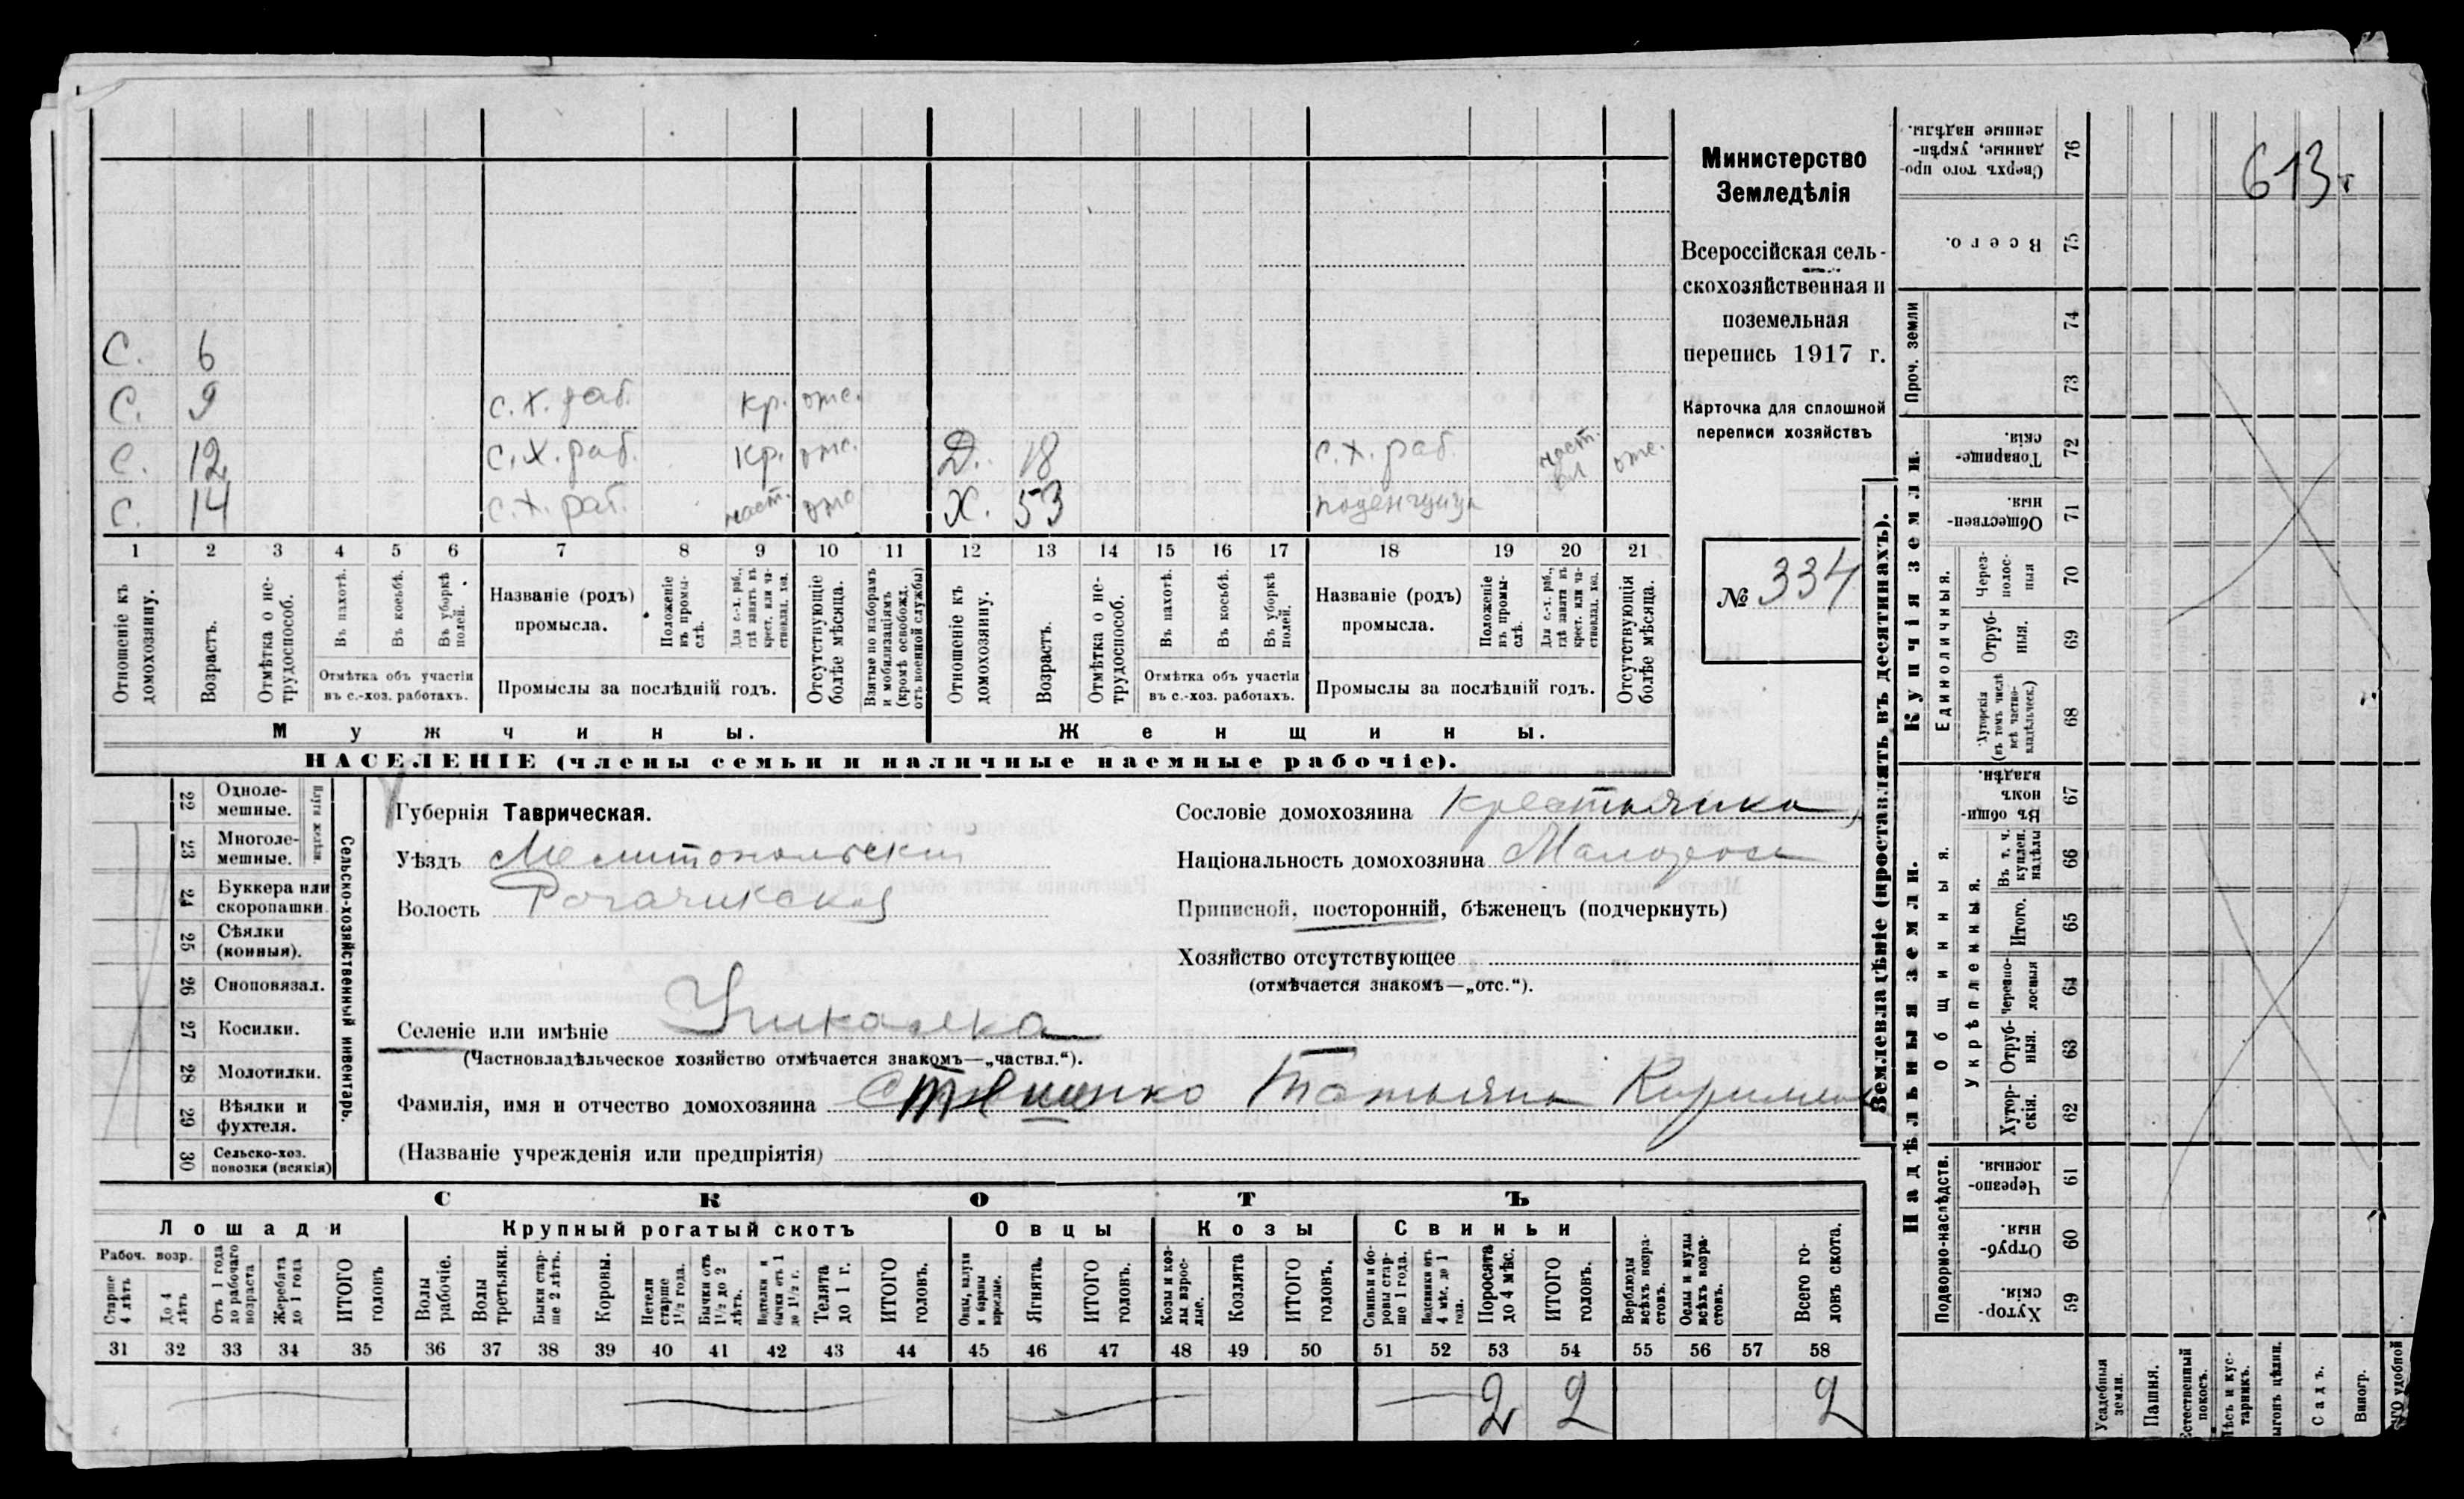 613
С. 6
С. 9 с. х. раб. кр. отс.
С. 12 с. х. раб. кр. отс. Д. 18 с. х. раб. част. вл отс.
С. 14 с. х. раб. част. отс Х. 53 поденщица
1 2 3 4 5 6 7 8 9 10 11 12 13 14 15 16 17 18 19 20 21
Отношеніе къ домохозяину.
Возрастъ.
Отмѣтка о не-трудоспособ.
Въ пахотѣ.
Въ косьбѣ.
Въ уборкѣ полей.
Отмѣтка объ участіи
въ с.-хоз. работахъ.
Названіе (родъ)
промысла.
Положеніе въ промы-слѣ.
Для с.-х. раб., гдѣ занятъ въ крест. или ча-ствовлад. хоз.
Промыслы за послѣдній годъ.
Отсутствующіе болѣе мѣсяца.
Взятые по наборамъ и мобилизаціямъ (кромѣ освобожд. отъ военной службы)
Отношеніе къ домохозяину.
Возрастъ.
Отмѣтка о не-трудоспособ.
Въ пахотѣ.
Въ косьбѣ.
Въ уборкѣ полей.
Отмѣтка объ участіи
въ с.-хоз. работахъ.
Названіе (родъ)
промысла.
Положеніе въ промы-слѣ.
Для с.-х. раб., гдѣ занята въ крест. или ча-ствовлад. хоз.
Промыслы за послѣдній годъ.
Отсутствующія болѣе мѣсяца.
Мужчины.
Женщины.
НАСЕЛЕНІЕ (члены семьи и наличные наемные рабочіе).
Министерство
Земледѣлія
Всероссійская сель-
скохозяйственная и
поземельная
перепись 1917 г.
Карточка для сплошной
переписи хозяйствъ
№ 334
22 Одноле-мешные.
23 Многоле-мешные.
24 Буккера или скоропашки.
25 Сѣялки (конныя).
26 Сноповязал.
27 Косилки.
28 Молотилки.
29 Вѣялки и фухтеля.
30 Сельско-хоз. повозки (всякія)
Сельско-хозяйственный инвентарь.
Губернія Таврическая.
Уѣздъ Мелитопольскій
Волость Рогачикская
Селеніе или имѣніе
(Частновладѣльческое хозяйство отмѣчается знакомъ—„частвл.“).
Сословіе домохозяина крестьянка
Національность домохозяина Малоросс
Приписной, посторонній, бѣженецъ (подчеркнуть)
Хозяйство отсутствующее
(отмѣчается знакомъ—„отс.“).
Фамилія, имя и отчество домохозяина Татьяна
(Названіе учрежденія или предпріятія)
СКОТЪ
Лошади
Крупный рогатый скотъ
Овцы
Козы
Свиньи
Рабоч. возр.
Старше 4 лѣтъ
До 4 лѣтъ
Отъ 1 года до рабочаго возраста
Жеребята до 1 года
ИТОГО головъ
Волы рабочіе.
Волы третьяки.
Быки стар-ше 2 лѣтъ.
Коровы.
Нетели старше 1½ года.
Бычки отъ 1½ до 2 лѣтъ.
Подтелки и бычки отъ 1 до 1½ г.
Телята до 1 г.
ИТОГО головъ.
Овцы, валухи и бараны взрослые.
Ягнята.
ИТОГО головъ.
Козы и коз-лы взрос-лые.
Козлята
ИТОГО головъ.
Свиньи и бо-ровы стар-ше 1 года.
Подсвинки отъ 4 мѣс. до 1 года.
Поросята до 4 мѣс.
ИТОГО головъ.
Верблюды всѣхъ возра-стовъ.
Ослы и мулы всѣхъ возра-стовъ.
Всего го-ловъ скота.
31 32 33 34 35 36 37 38 39 40 41 42 43 44 45 46 47 48 49 50 51 52 53 54 55 56 57 58
2 2 2
Землевладѣніе (проставлять въ десятинахъ).
Купчія земли.
Надѣльныя земли.
Проч. земли
Единоличныя.
Общинныя.
Укрѣпленныя.
Подворно-наслѣдств.
76 Сверхъ того про-данные, укрѣп-ленные надѣлы.
75 Всего.
74
73
72 Товарище-скія.
71 Обществен-ныя.
70 Через-полос-ныя
69 Отруб-ныя.
68 Хуторскія (въ томъ числѣ всѣ частно-владѣльческ.)
67 Въ общи-номъ владѣн.
66 Въ т. ч. куплен. надѣлы
65 Итого.
64 Черезпо-лосныя
63 Отруб-ныя.
62 Хутор-скія.
61 Черезпо-лосныя.
60 Отруб-ныя.
59 Хутор-скія.
Усадебныя земли.
Пашня.
Естественный покосъ.
Лѣсъ и кус-тарникъ.
Выгонъ цѣлин.
Садъ.
Виногр.